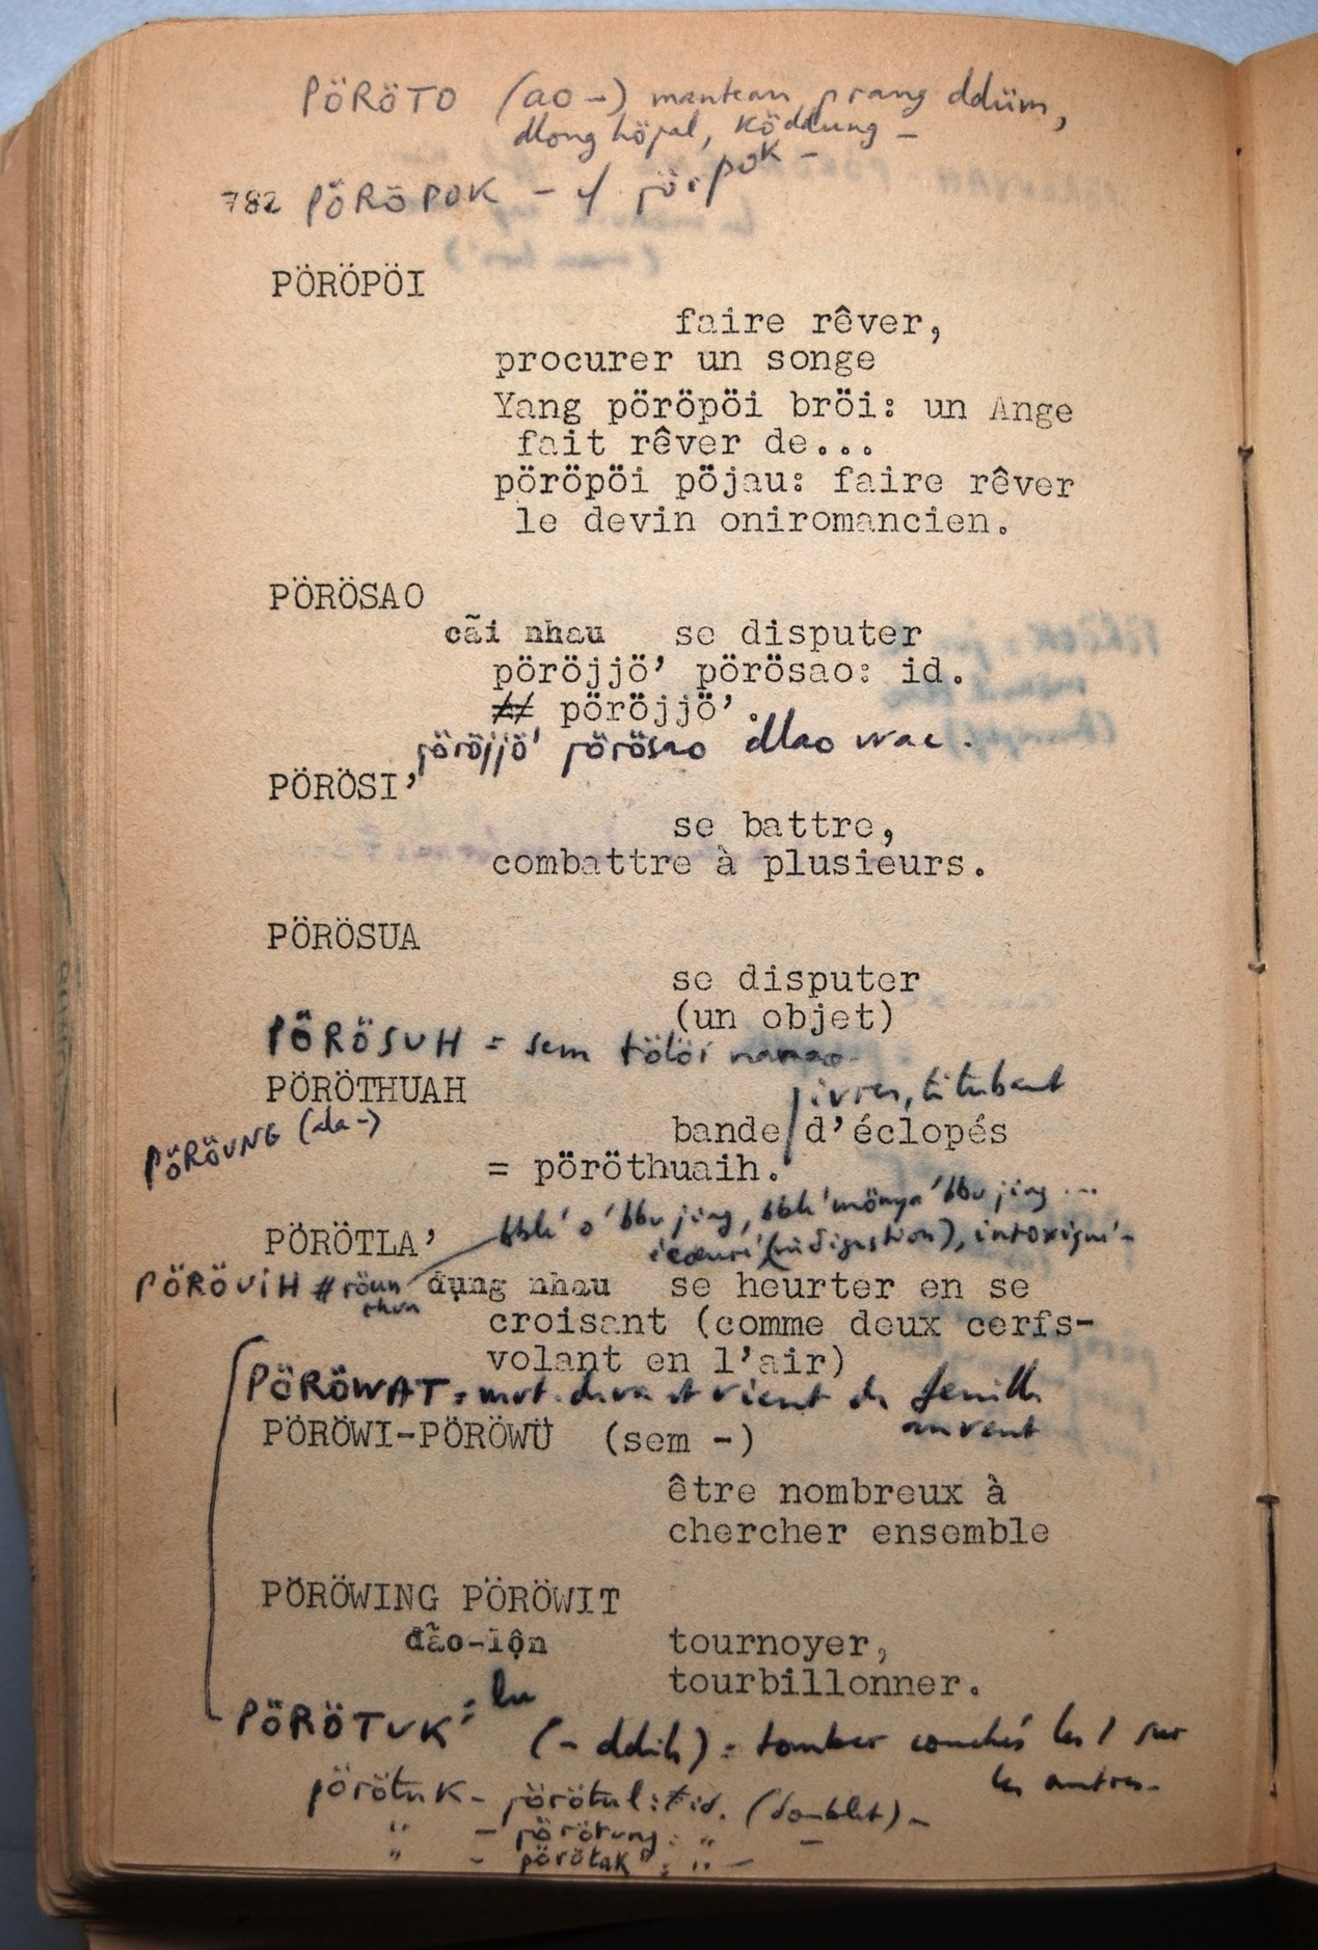 PÖRÖTO (ao -) mantean prang ddüm,
dlong höpal, Köddung -
782 PÖRÖPOK - pök -
PÖRÖPÖI
faire rêver,
procurer un songe
Yang pöröpöi bröi: un Ange
fait rêver de...
pöröpöi pöjau: faire rêver
le devin oniromancien.
PÖRÖSAO
cãi nhau se disputer
pöröjjö' pörösao: id.
≠ pöröjjö'.
pöröjjö' pörösao dlao wac.
PÖRÖSI'
se battre,
combattre à plusieurs.
PÖRÖSUA
se disputer
(un objet)
PÖRÖSUH = sem tölöi
PÖRÖTHUAH
ivres, titubant
bande d'éclopés
PÖRÖUNG (ala -)
= pöröthuaih.
PÖRÖTLA'
PÖRÖVIH # röun
đụng nhau se heurter en se
croisant (comme deux cerfs-
volant en l'air)
PÖRÖWAT = mvt. de va et vient de feuille
au vent
PÖRÖWI-PÖRÖWÜ (sem -)
être nombreux à
chercher ensemble
PÖRÖWING PÖRÖWIT
đão-lộn tournoyer,
tourbillonner.
PÖRÖTUK'
(- ddih) = tomber couchés les 1 sur
les autres -
pörötuk - pörötul : id. (doublet) -
" - pörötung : " -
" - pörötak : " -